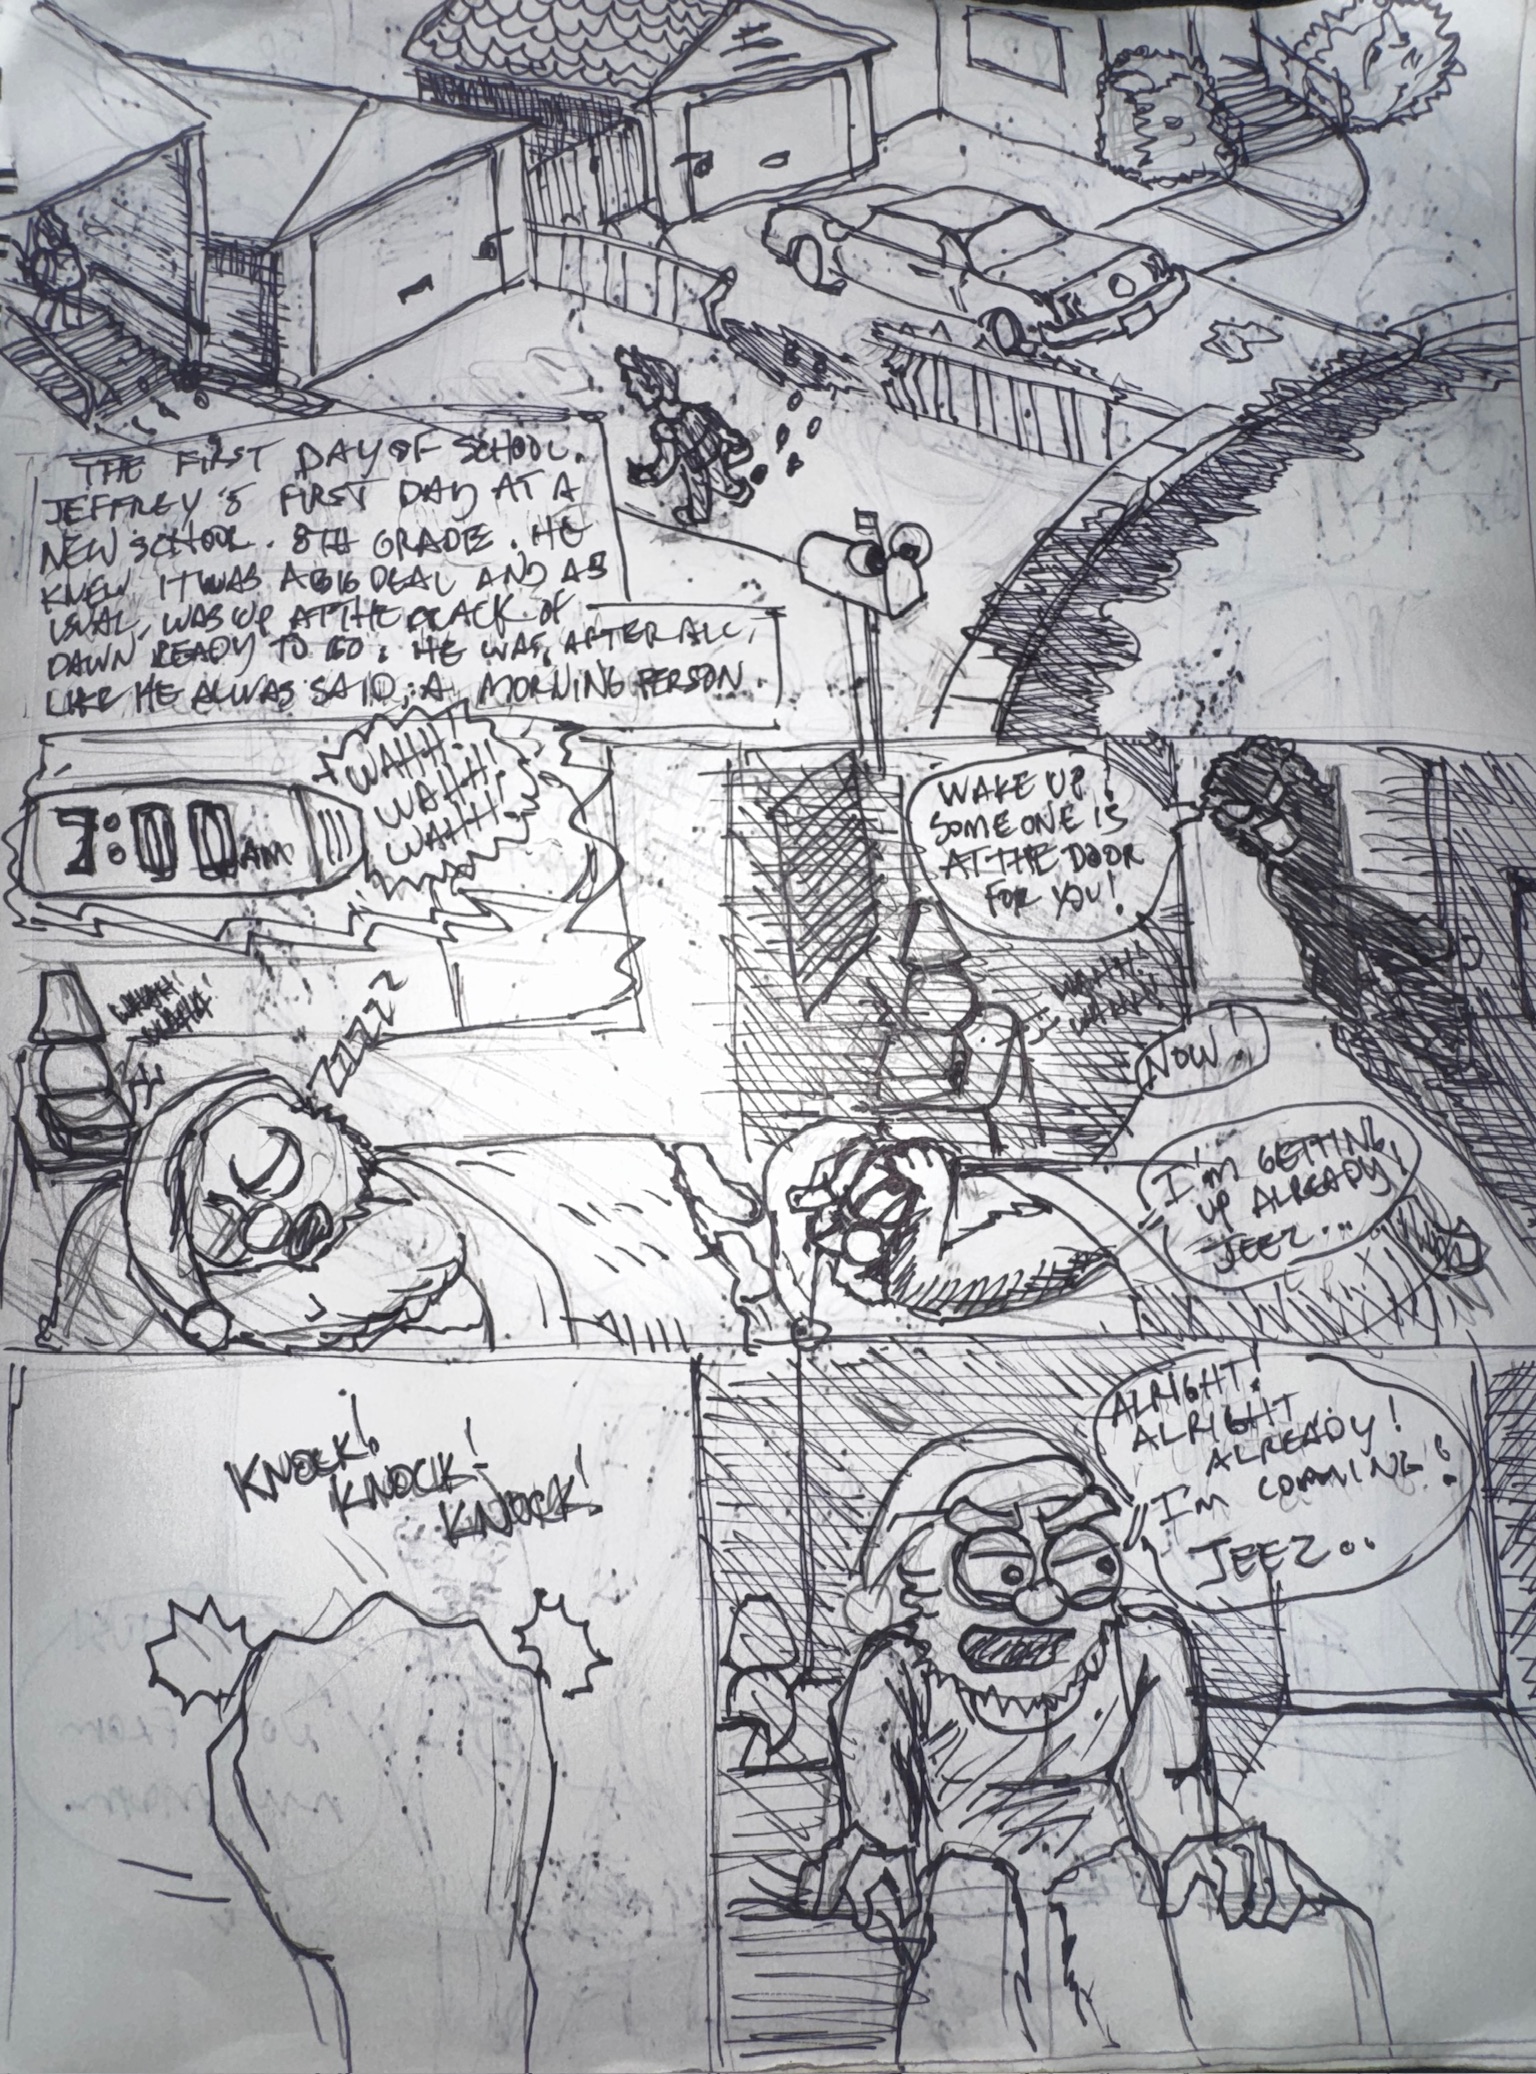 THE FIRST DAY OF SCHOOL.
JEFFREY'S FIRST DAY AT A
NEW SCHOOL. 8TH GRADE. HE
KNEW IT WAS A BIG DEAL AND AS
USUAL, WAS UP AT THE CRACK OF
DAWN READY TO GO. HE WAS, AFTER ALL,
LIKE HE ALWAS SAID, A MORNING PERSON.
7:00 AM
WAHH!
WAHH!
WAHH!
ZZZZZ
WAKE UP!
SOMEONE IS
AT THE DOOR
FOR YOU!
WAHH!
WAHH!
NOW!
I'M GETTING
UP ALREADY!
JEEZ...
KNOCK!
KNOCK!
KNOCK!
ALRIGHT!
ALRIGHT
ALREADY!
I'M COMMING!
JEEZ..